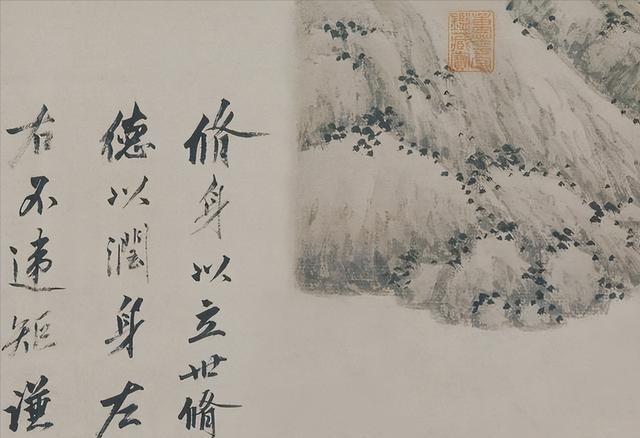 脩身以立世脩
德以潤身左
右不違矩謙